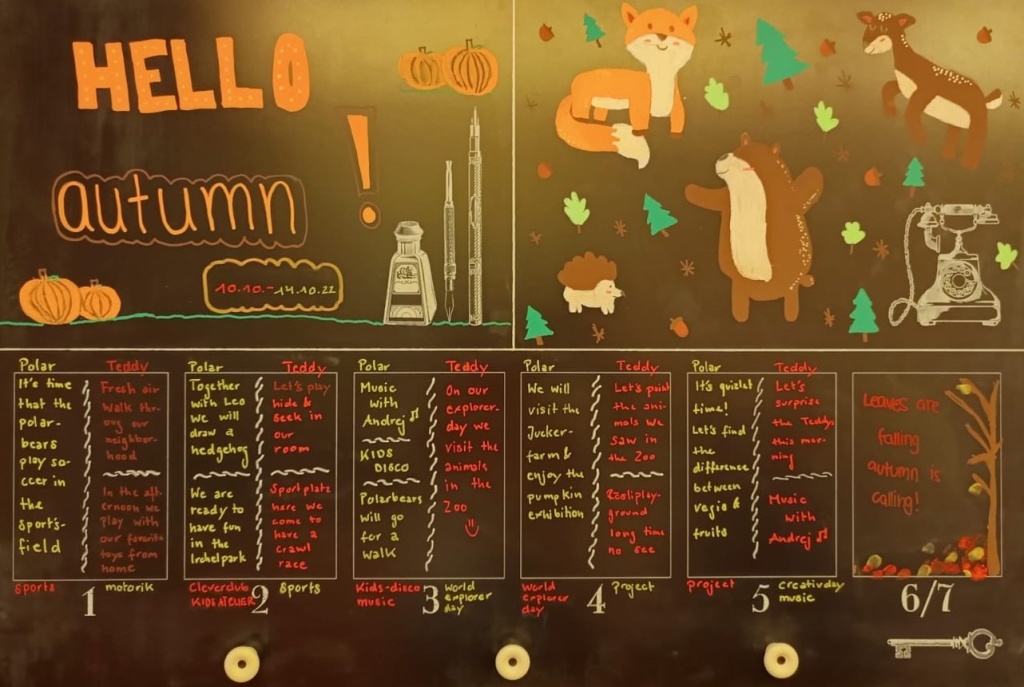 HELLO
!
autumn
10.10.-14.10.22
Polar
It's time
that the
polar-
bears
play so-
ccer in
the
sport's-
field
Teddy
Fresh air
walk thr-
oug our
neighbor-
hood
In the aft-
ernoon we
play with
our favorite
toys from
home
sports
motorik
1
Polar
Together
with Leo
we will
draw a
hedgehog
We are
ready to
have fun
in the
Irchelpark
Teddy
Let's play
hide &
seek in
our
room
Sportplatz
here we
come to
have a
crawl
race
Cleverclub
KIDS ATELIER
sports
2
Polar
Music
with
Andrej
KIDS
DISCO
Polarbears
will go
for a
walk
Teddy
On our
explorer-
day we
visit the
animals
in the
Zoo
Kids-disco
music
world
explorer
day
3
Polar
We will
visit the
Jucker-
farm &
enjoy the
pumpkin
exhibition
Teddy
Let's paint
the ani-
mals we
saw in
the Zoo
play-
ground
long time
no see
world
explorer
day
project
4
Polar
It's quizlet
time!
Let's find
the
difference
between
vegie &
fruits
Teddy
Let's
surprise
the Teddys
this mor-
ning
Music
with
Andrej
project
creativday
music
5
Leaves are
falling
autumn is
calling!
6/7